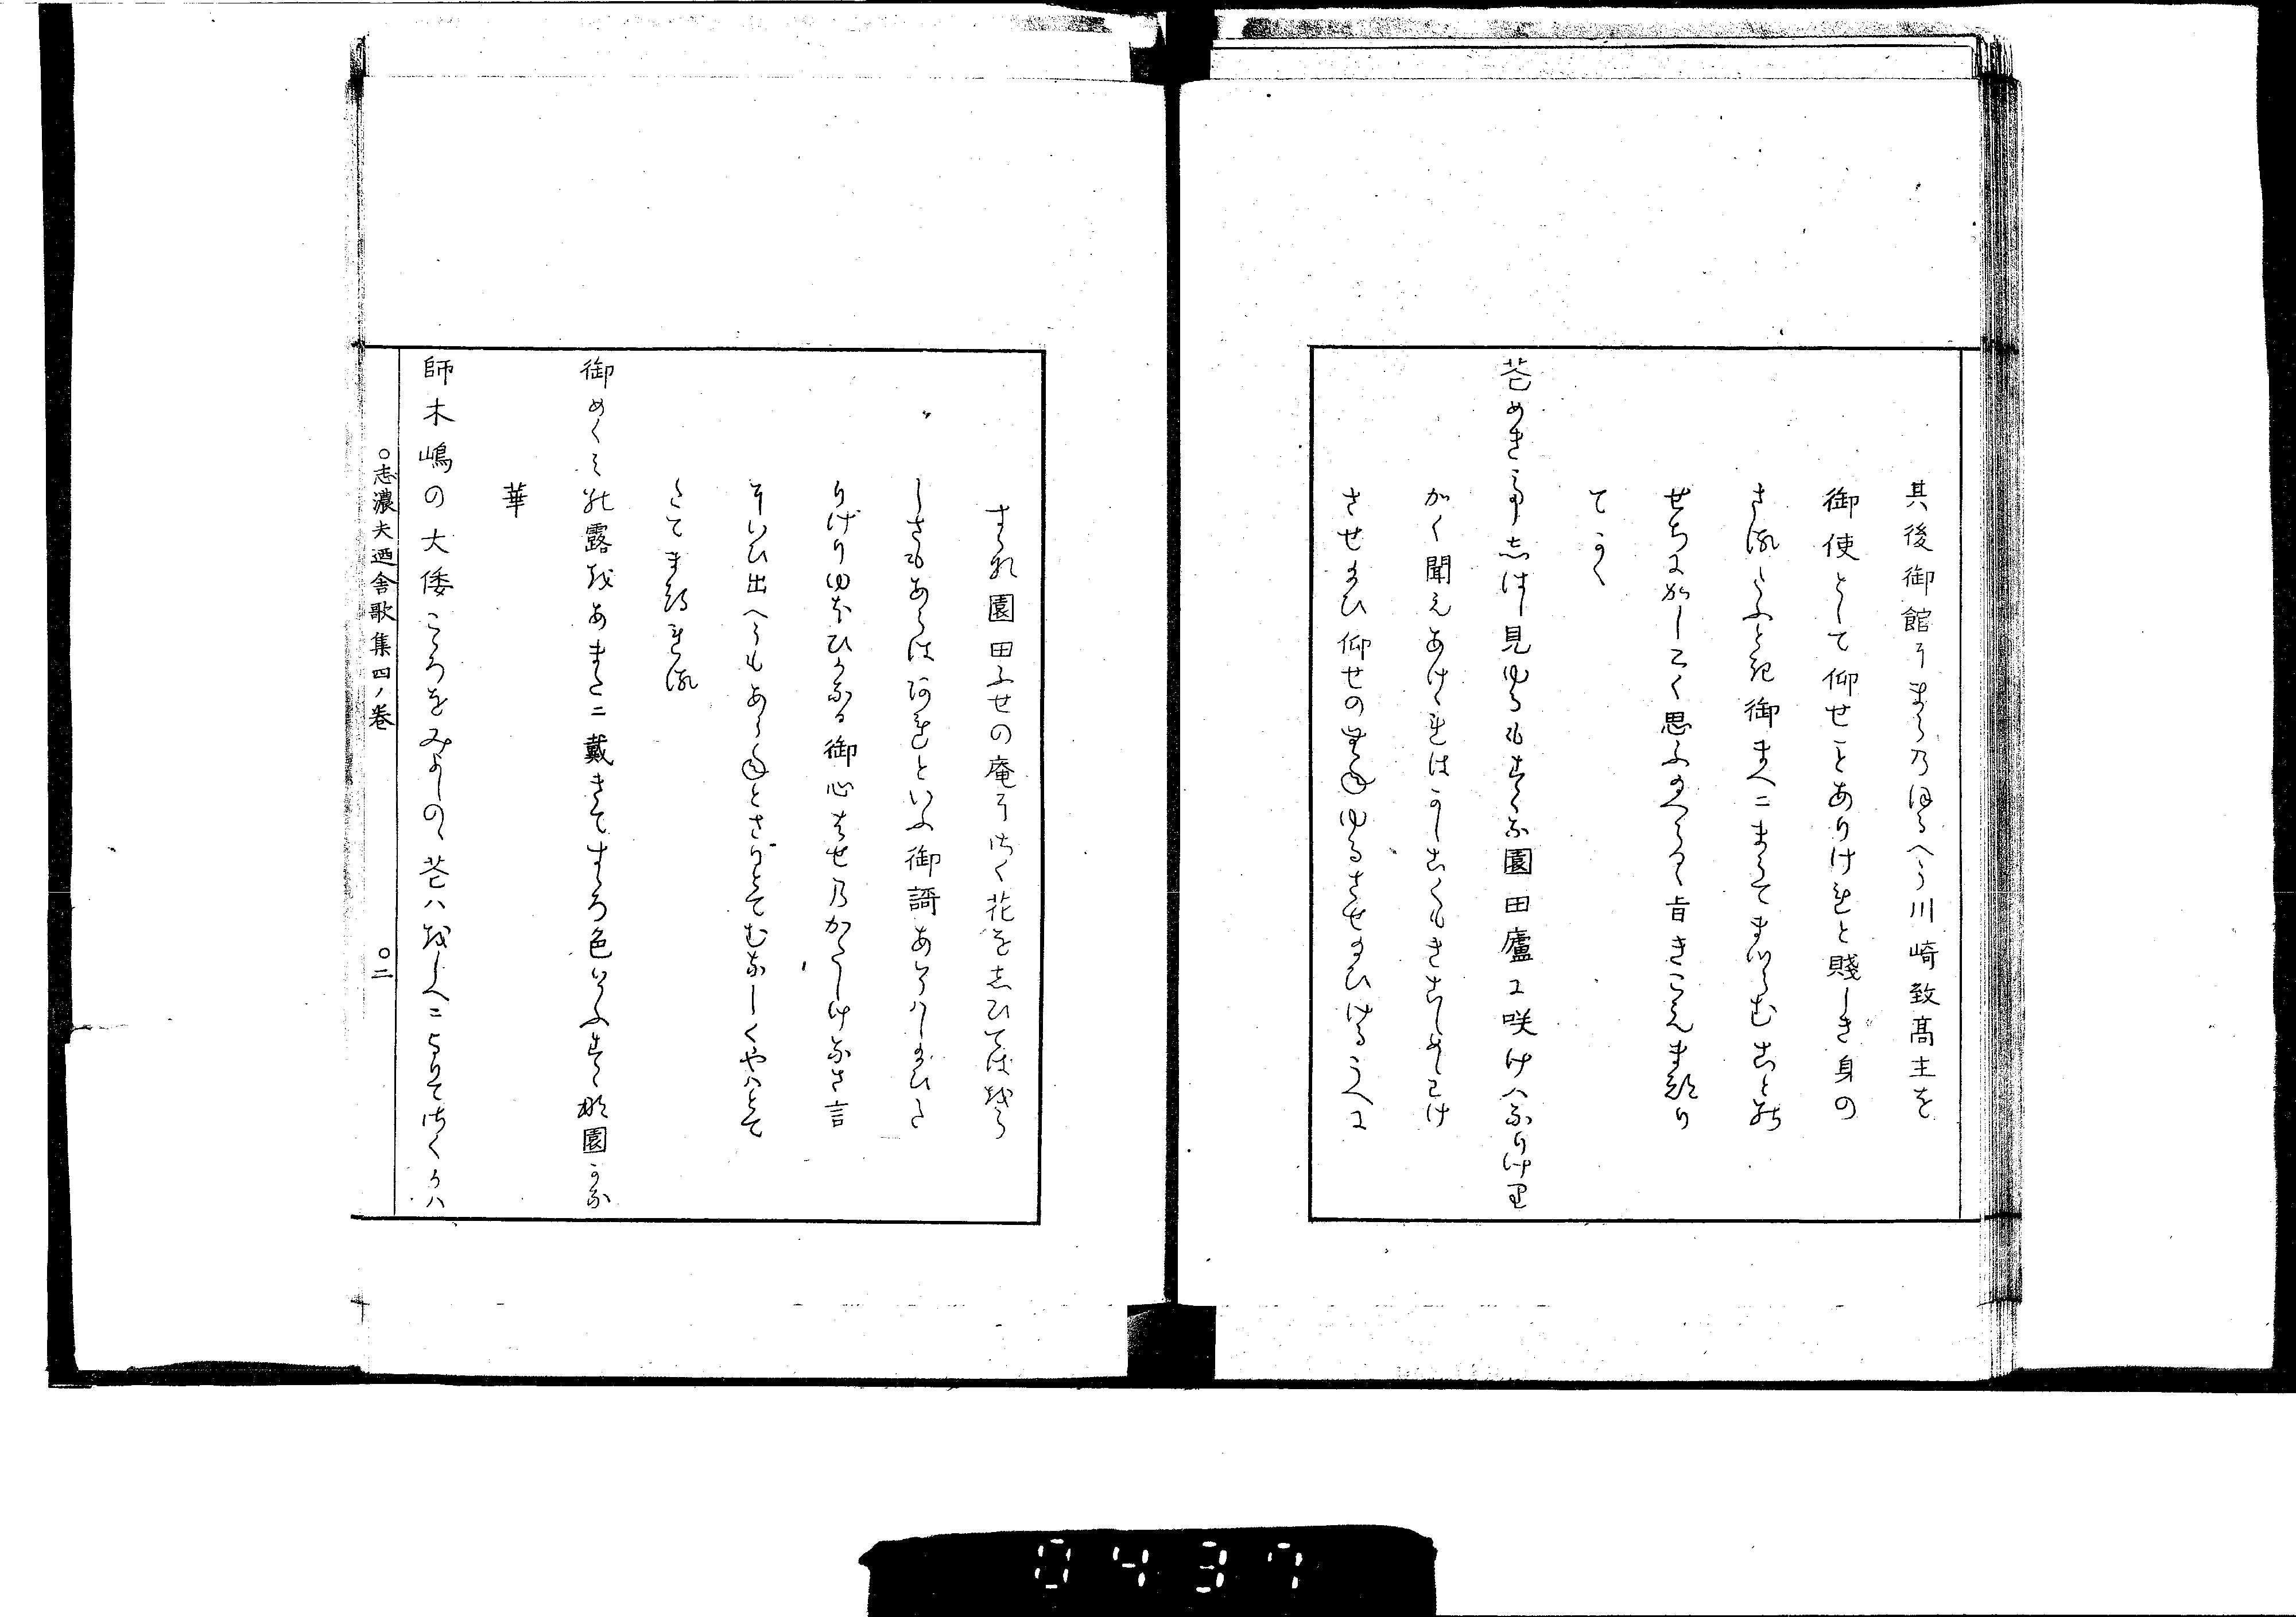 其後御館にまうのほるへう川崎致高主を
御使として仰せことありけれと賤しき身の
さるたふとき御まへにまうてまつらむことの
せちにかしこく思ふたまへらるゝ旨きこえまつり
てかく
花めきてしはし見ゆるもすゝな園田廬に咲けはなりけり
かく聞えあけけれはかしこくもきこしめしわけ
させたまひ仰せのまゝゆるさせたまひけるうへに
すゝな園田ふせの庵にさく花をしひてはをら
しさもあらはあれといふ御謌あそはしたまひた
りけりゆおひかなる御心はせのかたしけなさ言
にいひ出へうもあらねとさりとてむなしくやはとて
たてまつれる
御めくみの露をあまたに戴きてまつろ色いふすゝな園かな
華
師木嶋の大倭こゝろをみよしのゝ花はをしへによりてさくかは
○志濃夫廼舎歌集四ノ巻　○二
0437